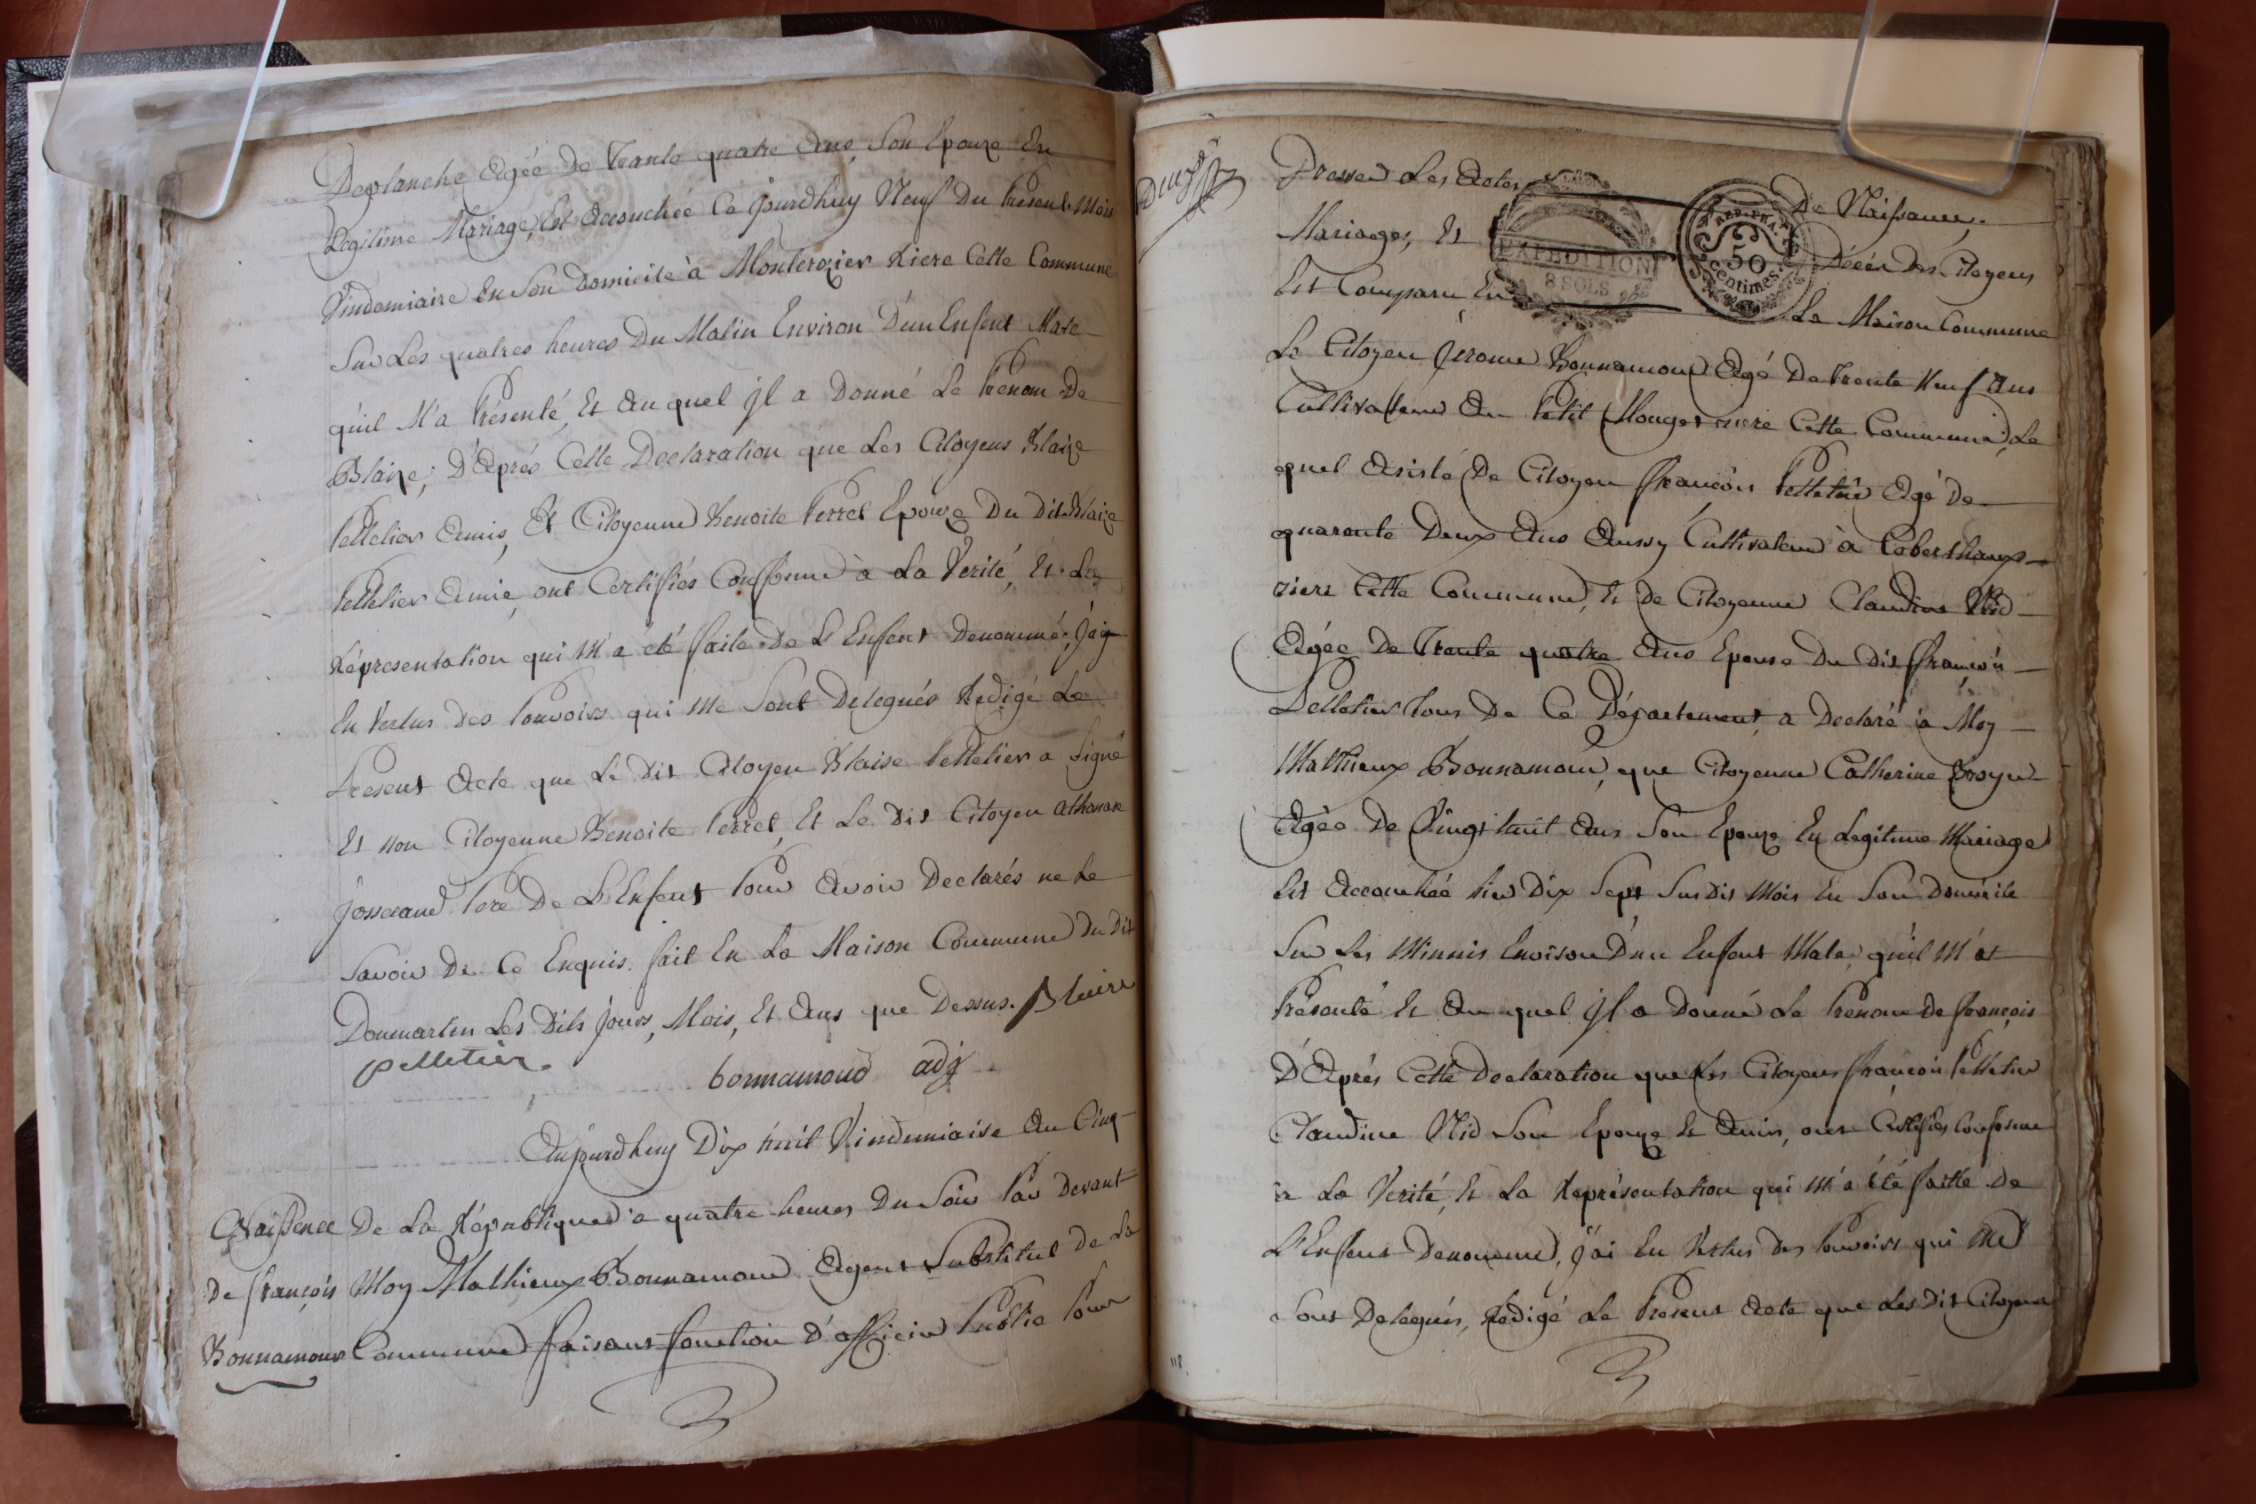 Deplanche Agée de Trante quatre Ans, Son Epouze En
Legitime Mariage, Est Acouchée Ce jourdhuy Neuf Du Présent Mois
Vindemiaire En Son Domicile à Monterozier Riere Cette Commune
Sur Les quatres heures Du Matin Environ D'un Enfent Male
qu'il M'a Présenté, Et Au quel jl a Donné Le Prenom De
Blaize; D'Aprés Cette Declaration que Les Citoyens Blaize
Pelletier Amis, Et Citoyenne Benoite Perret Epouze Du Dit Blaize
Pelletier Amie, ont Certifiés Conforme à La Verité, Et La
Répresentation qui M'a été faite De L'Enfent Denommé, j'ai
En Vertus Des Pouvoirs qui Me Sont Delegués Redigé Le
Present Acte que Le Dit Citoyen Blaise Pelletier a Signé
Et non Citoyenne Benoite Perret, Et Le Dit Citoyen Athanase
Josserand Pere De L'Enfent Pour Avoir Declarés ne Le
Savoir De Ce Enquis. fait En La Maison Commune du Dit
Dommartin Les Dits jours, Mois, Et Ans que Dessus. Blaise
pelletier.
bonnamoud adj
Aujourdhuy Dix huit Vindemiaise An Cinq
Naissence De La Républiques a quatre heures Du Soir Par Devant
De françois Moy Mathieux Bonnamour Agent Substitut De La
Bonnamour Commune faisant fonction D'officier Public Pour
Dresser Les Actes De Naissance,
EXPEDITION
8 SOLS
REP. FRA.
50
Centimes
Mariages, Et Décés Des Citoyens
Est Comparu En La Maison Commune
Le Citoyen Jerome Bonnamour Agé De trente Neuf Ans
Cultivateur Au Petit riere Cette Commune, Le
quel Asisté De Citoyen françois Pelletier Agé De
quarente Deux Ans Aussy Cultivateur à
riere Cette Commune, Et De Citoyenne Claudine Nid
Agée De Trente quatre Ans Epouse Du Dit françois
Pelletier Tous De Ce Département, a Declaré à Moy
Mathieux Bonnamour, que Citoyenne Catherine
Agée De Vingt huit Ans Son Epouze En Legitime Mariage
Est Accouchée hier Dix Sept Sus Dit Mois En Son Domicile
Sur Les Minuis Environ D'un Enfent Male, qu'il M'at
Présenté Et Au quel jl a Donné Le Prenom De françois
D'Aprés Cette Declaration que Les Citoyens françois Pelletier
Claudine Nid Son Epouze Et Amis, ont Certifiés Conforme
a La Verité, Et La Représentation qui M'a été faitte De
L'Enfent Denommé, j'ai En Vertus Des Pouvoirs qui Me
Sont Delegués, Redigé Le Present Acte que Les Dit Citoyens